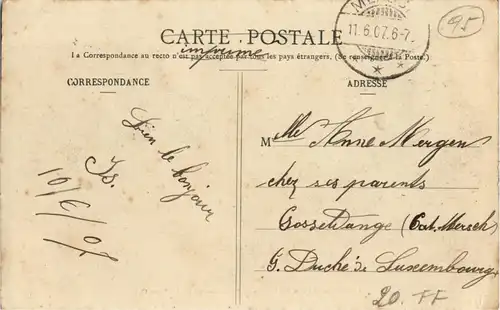 95
CARTE POSTALE
imprimé
La Correspondance au recto n'est pas acceptée par tous les pays étrangers. (Se renseigner à la Poste.)
11.6.07.6-7.
CORRESPONDANCE
Bien le bonjour
Js.
10/6/07
ADRESSE
Mlle Anne Mergen
chez ses parents
Gosseldange (Cat. Mersch)
G. Duché de Luxembourg
20 FF